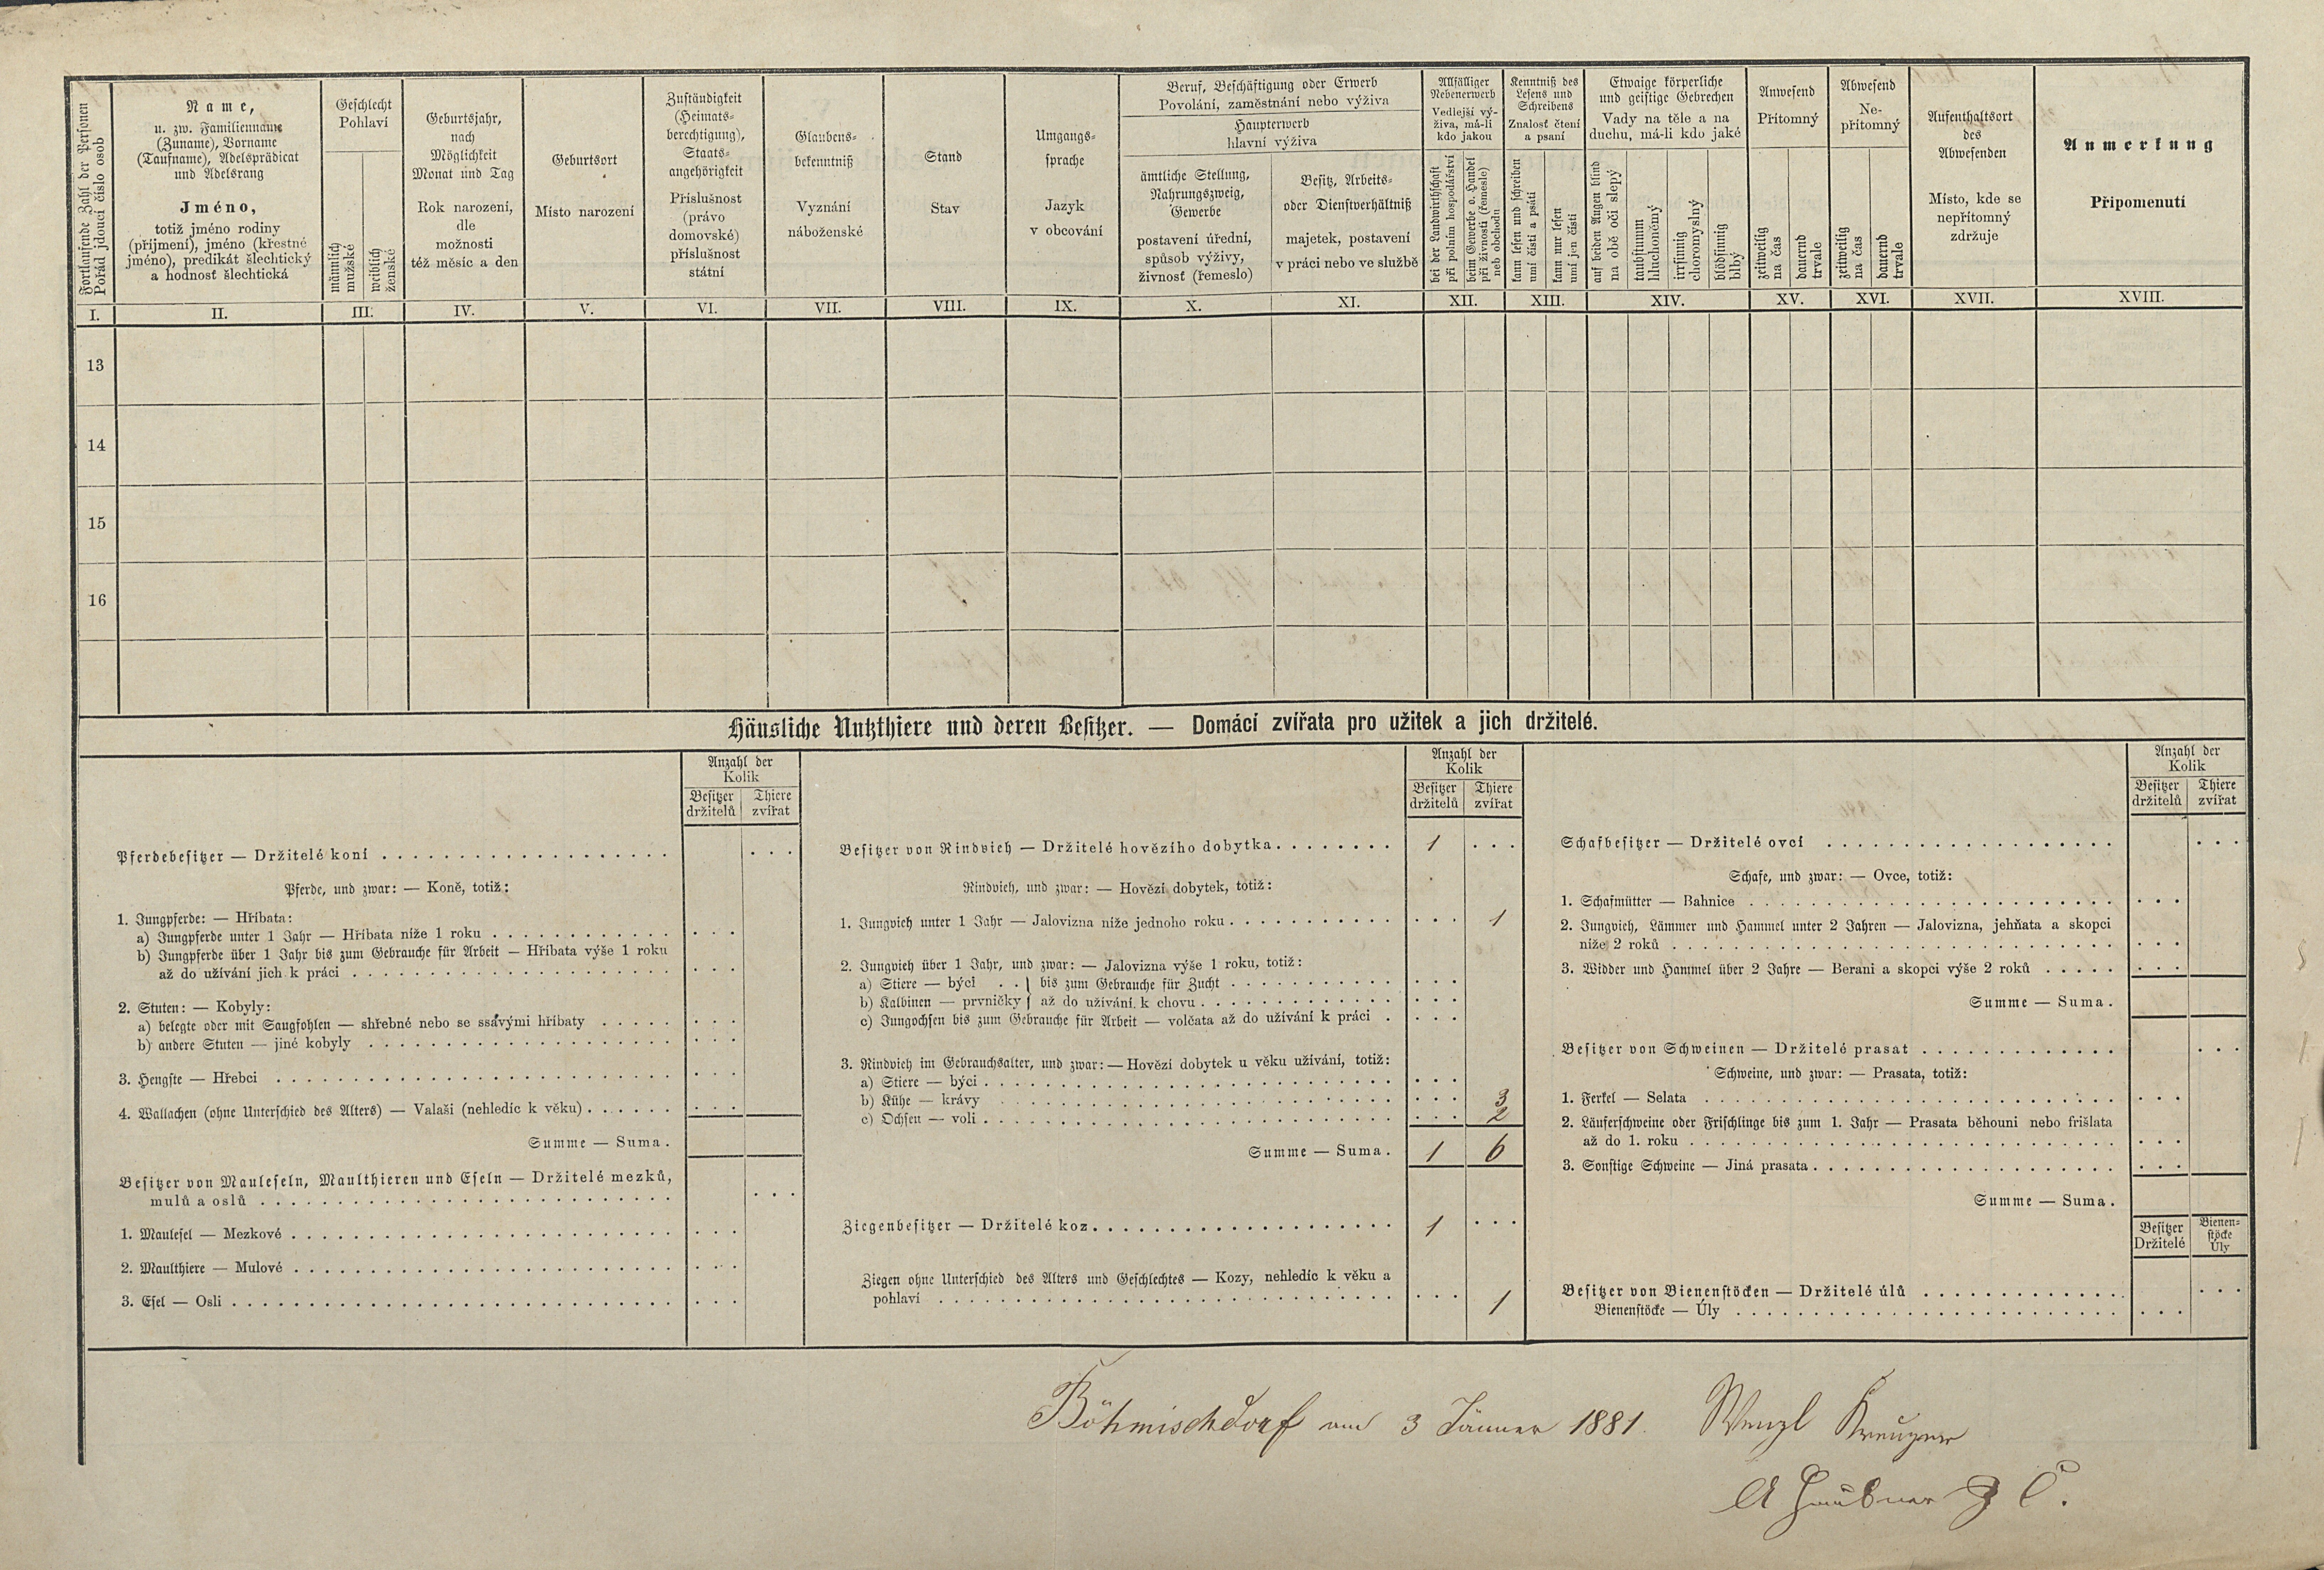 Fortlaufende Zahl der Personen
Pořád jdoucí číslo osob
Name,
u. zw. Familienname
(Zuname), Vorname
(Taufname), Adelsprädicat
und Adelsrang
Jméno,
totiž jméno rodiny
(příjmení), jméno (křestné
jméno), predikát šlechtický
a hodnosť šlechtická
Geschlecht
Pohlaví
männlich
mužské
weiblich
ženské
Geburtsjahr,
nach
Möglichkeit
Monat und Tag
Rok narození,
dle
možnosti
též měsíc a den
Geburtsort
Místo narození
Zuständigkeit
(Heimats-
berechtigung),
Staats-
angehörigkeit
Příslušnost
(právo
domovské)
příslušnost
státní
Glaubens-
bekenntniß
Vyznání
náboženské
Stand
Stav
Umgangs-
sprache
Jazyk
v obcování
Beruf, Beschäftigung oder Erwerb
Povolání, zaměstnání nebo výživa
Haupterwerb
hlavní výživa
ämtliche Stellung,
Nahrungszweig,
Gewerbe
postavení úřední,
spůsob výživy,
živnosť (řemeslo)
Besitz, Arbeits-
oder Dienstverhältniß
majetek, postavení
v práci nebo ve službě
Allfälliger
Nebenerwerb
Vedlejší vý-
živa, má-li
kdo jakou
bei der Landwirthschaft
při polním hospodářství
beim Gewerbe o. Handel
při živnosti (řemesle)
neb obchodu
Kenntniß des
Lesens und
Schreibens
Znalosť čtení
a psaní
kann lesen und schreiben
umí čísti a psáti
kann nur lesen
umí jen čísti
Etwaige körperliche
und geistige Gebrechen
Vady na těle a na
duchu, má-li kdo jaké
auf beiden Augen blind
na obě oči slepý
taubstumm
hluchoněmý
irrsinnig
choromyslný
blödsinnig
blbý
Anwesend
Přítomný
zeitweilig
na čas
dauernd
trvale
Abwesend
Ne-
přítomný
zeitweilig
na čas
dauernd
trvale
Aufenthaltsort
des
Abwesenden
Místo, kde se
nepřítomný
zdržuje
Anmerkung
Připomenutí
I. II. III. IV. V. VI. VII. VIII. IX. X. XI. XII. XIII. XIV. XV. XVI. XVII. XVIII.
13
14
15
16
Häusliche Nutzthiere und deren Besitzer. — Domácí zvířata pro užitek a jich držitelé.
Anzahl der
Kolik
Besitzer Thiere
držitelů zvířat
Pferdebesitzer — Držitelé koní
Pferde, und zwar: — Koně, totiž:
1. Jungpferde: — Hříbata:
a) Jungpferde unter 1 Jahr — Hříbata níže 1 roku
b) Jungpferde über 1 Jahr bis zum Gebrauche für Arbeit — Hříbata výše 1 roku
až do užívání jich k práci
2. Stuten: — Kobyly:
a) belegte oder mit Saugfohlen — shřebné nebo se ssavými hříbaty
b) andere Stuten — jiné kobyly
3. Hengste — Hřebci
4. Wallachen (ohne Unterschied des Alters) — Valaši (nehledíc k věku)
Summe — Suma.
Besitzer von Mauleseln, Maulthieren und Eseln — Držitelé mezků,
mulů a oslů
1. Maulesel — Mezkové
2. Maulthiere — Mulové
3. Esel — Osli
Anzahl der
Kolik
Besitzer Thiere
držitelů zvířat
Besitzer von Rindvieh — Držitelé hovězího dobytka 1
Rindvieh, und zwar: — Hovězí dobytek, totiž:
1. Jungvieh unter 1 Jahr — Jalovizna níže jednoho roku 1
2. Jungvieh über 1 Jahr, und zwar: — Jalovizna výše 1 roku, totiž:
a) Stiere — býci . . } bis zum Gebrauche für Zucht
b) Kalbinen — prvničky } až do užívání k chovu
c) Jungochsen bis zum Gebrauche für Arbeit — volčata až do užívání k práci
3. Rindvieh im Gebrauchsalter, und zwar: — Hovězí dobytek u věku užívání, totiž:
a) Stiere — býci
b) Kühe — krávy 3
c) Ochsen — voli 2
Summe — Suma. 1 6
Ziegenbesitzer — Držitelé koz 1
Ziegen ohne Unterschied des Alters und Geschlechtes — Kozy, nehledíc k věku a
pohlaví 1
Anzahl der
Kolik
Besitzer Thiere
držitelů zvířat
Schafbesitzer — Držitelé ovcí
Schafe, und zwar: — Ovce, totiž:
1. Schafmütter — Bahnice
2. Jungvieh, Lämmer und Hammel unter 2 Jahren — Jalovizna, jehňata a skopci
níže 2 roků
3. Widder und Hammel über 2 Jahre — Berani a skopci výše 2 roků
Summe — Suma.
Besitzer von Schweinen — Držitelé prasat
Schweine, und zwar: — Prasata, totiž:
1. Ferkel — Selata
2. Läuferschweine oder Frischlinge bis zum 1. Jahr — Prasata běhouni nebo frišlata
až do 1. roku
3. Sonstige Schweine — Jiná prasata
Summe — Suma.
Besitzer Bienen-
stöcke
Držitelé Úly
Besitzer von Bienenstöcken — Držitelé úlů
Bienenstöcke — Úly
Böhmischdorf am 3 Jänner 1881. Wenzl Kreuzer